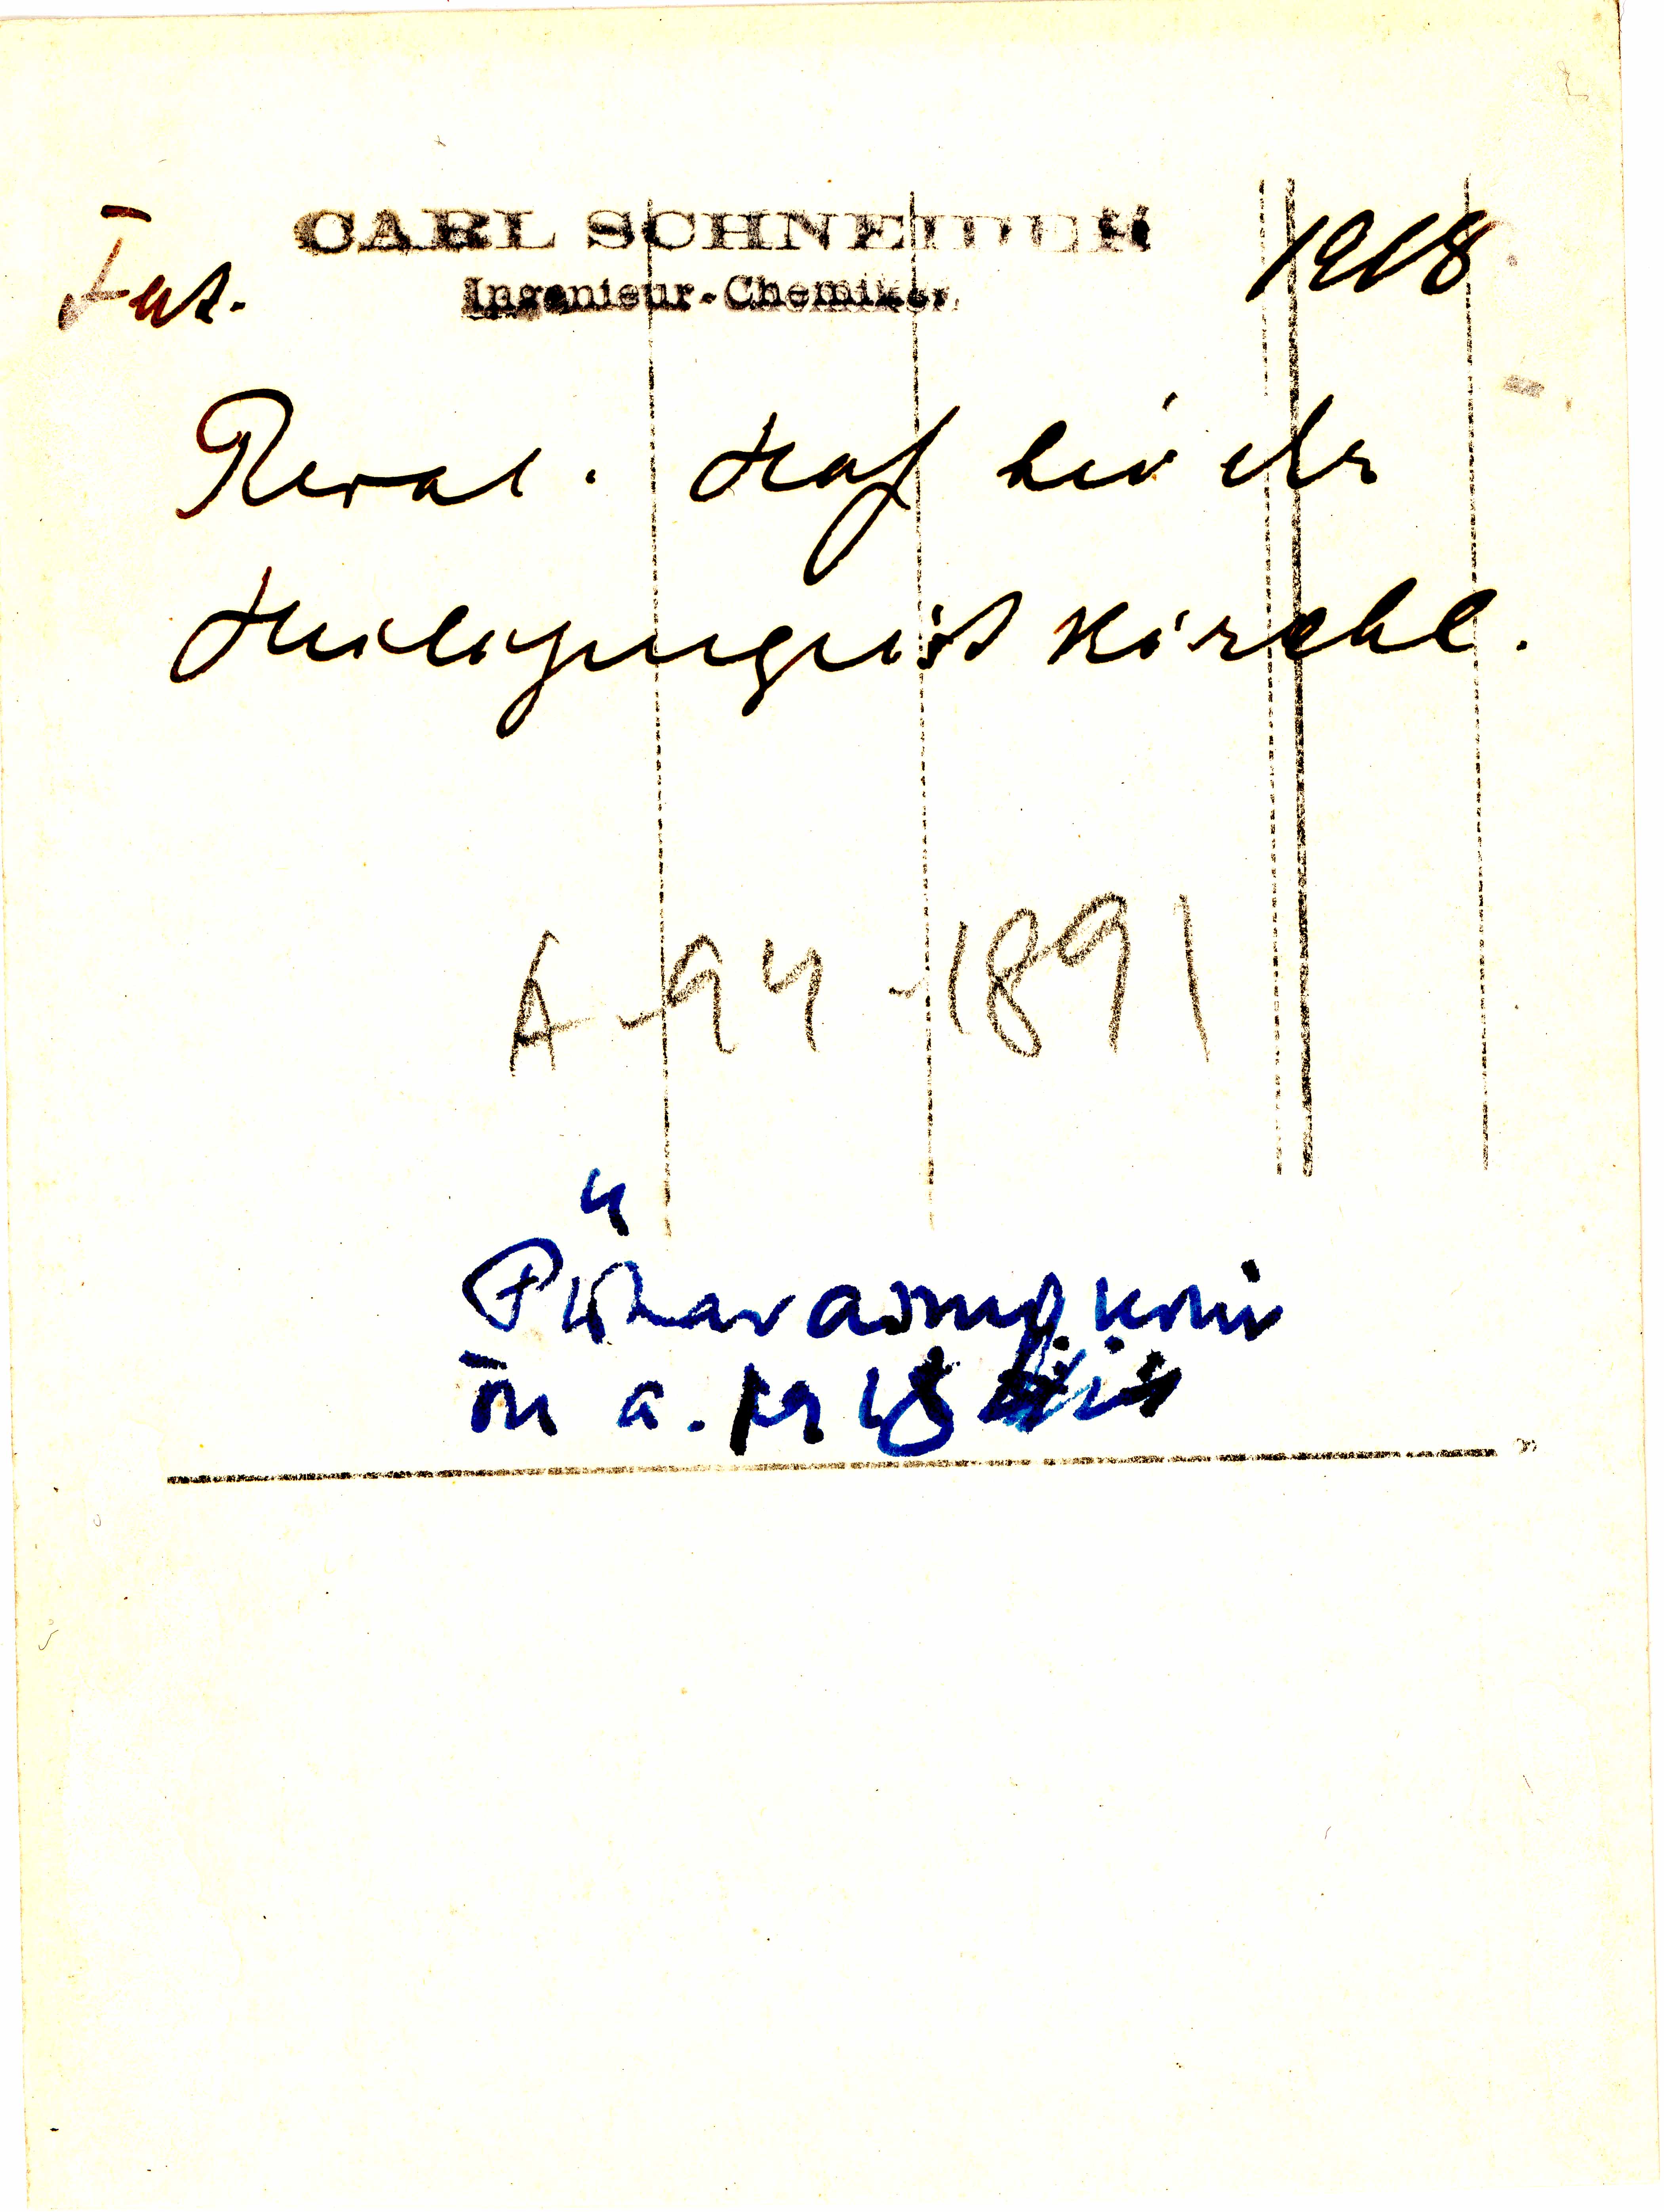 Fot. CARL SCHNEIDER 1918.
Ingenieur-Chemiker.
Reval. Hof bei der
Heiligengeistkirche.
A-94-1891
Pühavaimu kirik
a. 1918